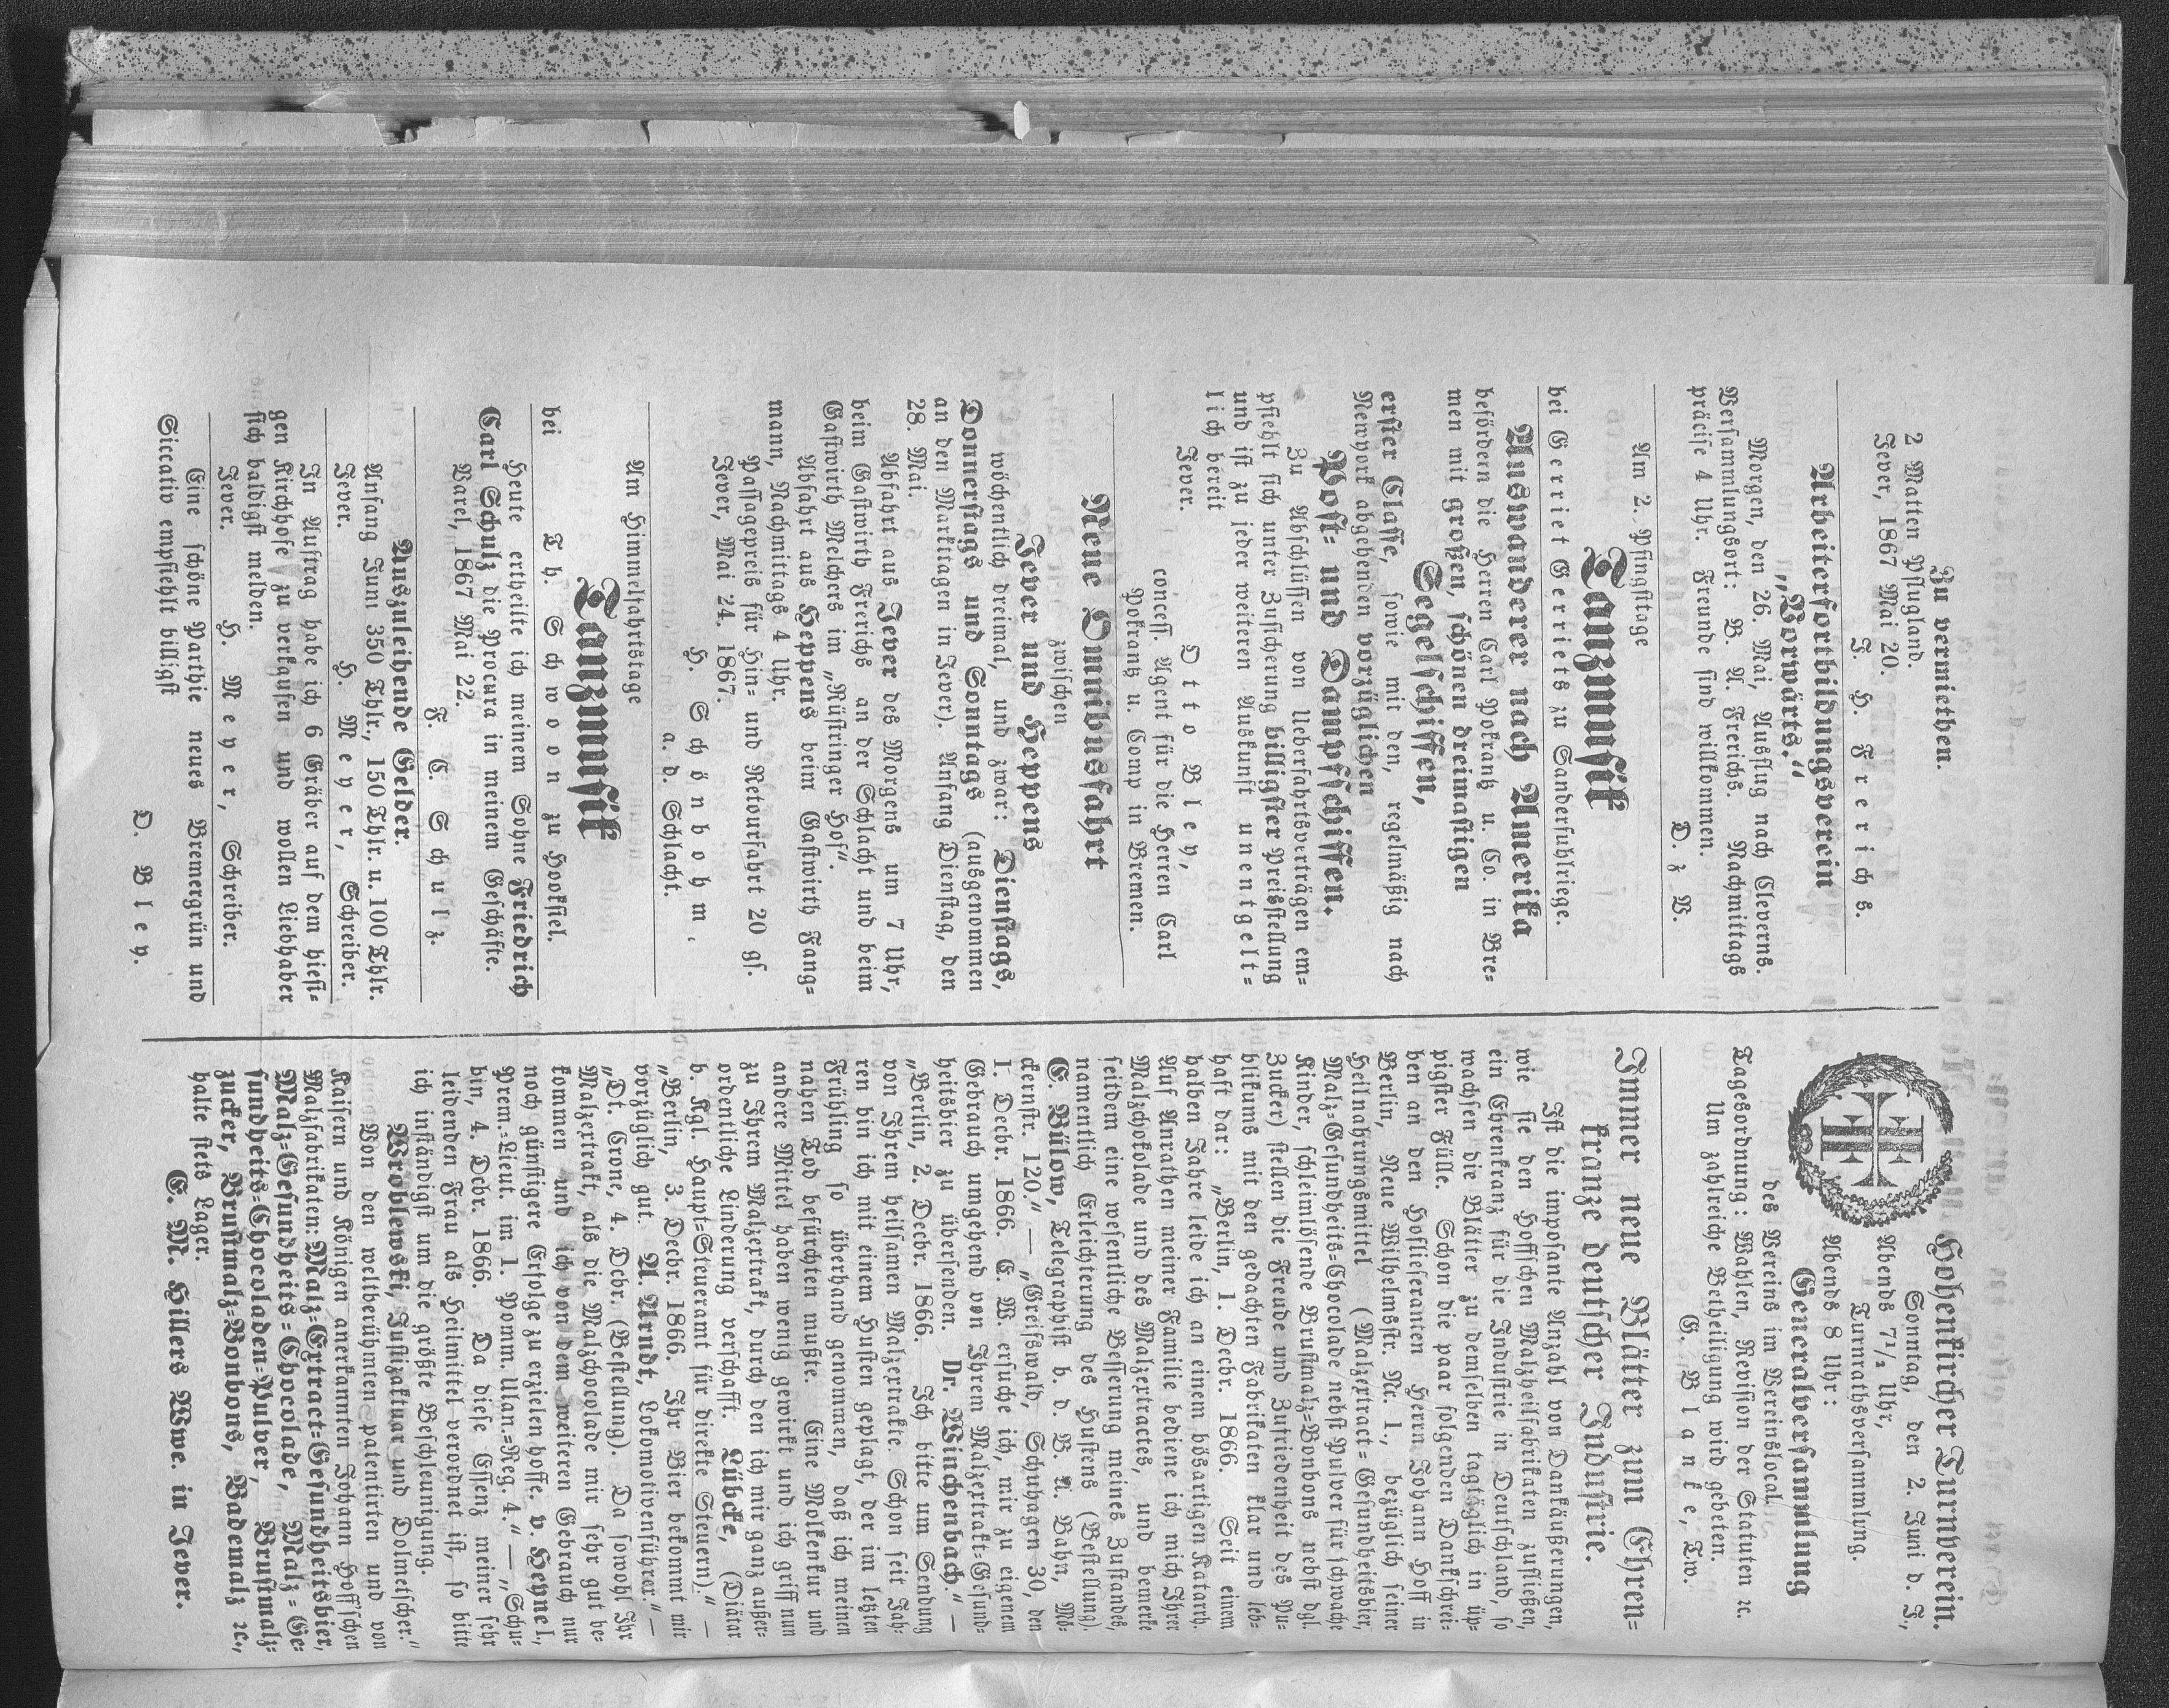 Zu vermiethen.
2 Matten Pflugland.
Jever, 1867 Mai 20.
J. H. Frerichs.
Arbeiterfortbildungsverein
„Vorwärts.“
Morgen, den 26. Mai, Ausflug nach Cleverns.
Versammlungsort: B. A. Frerichs. Nachmittags
präcise 4 Uhr. Freunde sind willkommen.
D. z V.
Am 2. Pfingsttage
Tanzmusik
bei Gerriet Gerriets zu Sanderfuhlriege.
Auswanderer nach Amerika
befördern die Herren Carl Pokrantz u. Co. in Bre-
men mit großen, schönen dreimastigen
Segelschiffen,
erster Classe, sowie mit den, regelmäßig nach
Newyork abgehenden vorzüglichen
Post- und Dampfschiffen.
Zu Abschlüssen von Ueberfahrtsverträgen em-
pfiehlt sich unter Zusicherung billigster Preisstellung
und ist zu jeder weiteren Auskunft unentgelt-
lich bereit
Jever. Otto Bley,
concess. Agent für die Herren Carl
Pokrantz u. Comp in Bremen.
Neue Omnibusfahrt
zwischen
Jever und Heppens
wöchentlich dreimal, und zwar: Dienstags,
Donnerstags und Sonntags (ausgenommen
an den Markttagen in Jever). Anfang Dienstag, den
28. Mai.
Abfahrt aus Jever des Morgens um 7 Uhr,
beim Gastwirth Frerichs an der Schlacht und beim
Gastwirth Melchers im „Rüstringer Hof“.
Abfahrt aus Heppens beim Gastwirth Fang-
mann, Nachmittags 4 Uhr.
Passagepreis für Hin- und Retourfahrt 20 gs.
Jever, Mai 24. 1867.
H. Schönbohm,
a. d. Schlacht.
Am Himmelfahrtstage
Tanzmusik
bei Th. Schwoon zu Hooksiel.
Heute ertheilte ich meinem Sohne Friedrich
Carl Schulz die Procura in meinem Geschäfte.
Varel, 1867 Mai 22.
F. C. Schulz.
Auszuleihende Gelder.
Anfang Juni 350 Thlr., 150 Thlr. u. 100 Thlr.
Jever. H. Meyer, Schreiber.
In Auftrag habe ich 6 Gräber auf dem hiesi-
gen Kirchhofe zu verkaufen und wollen Liebhaber
sich baldigst melden.
Jever. H. Meyer, Schreiber.
Eine schöne Parthie neues Bremergrün und
Siccativ empfiehlt billigst
O. Bley.
Hohenkircher Turnverein.
Sonntag, den 2. Juni d. J.,
Abends 7½ Uhr,
Turnrathsversammlung.
Abends 8 Uhr:
Generalversammlung
des Vereins im Vereinslocal.
Tagesordnung: Wahlen, Revision der Statuten ꝛc.
Um zahlreiche Betheiligung wird gebeten.
G. Blanke, Tw.
Immer neue Blätter zum Ehren-
kranze deutscher Industrie.
Ist die imposante Anzahl von Dankäußerungen,
wie sie den Hoffschen Malzheilfabrikaten zufließen,
ein Ehrenkranz für die Industrie in Deutschland, so
wachsen die Blätter zu demselben tagtäglich in üp-
pigster Fülle. Schon die paar folgenden Dankschrei-
ben an den Hoflieferanten Herrn Johann Hoff in
Berlin, Neue Wilhelmsstr. Nr. 1., bezüglich seiner
Heilnahrungsmittel (Malzextract-Gesundheitsbier,
Malz-Gesundheits-Chocolade nebst Pulver für schwache
Kinder, schleimlösende Brustmalz-Bonbons nebst dgl.
Zucker) stellen die Freude und Zufriedenheit des Pu-
blikums mit den gedachten Fabrikaten klar und leb-
haft dar: „Berlin, 1. Decbr. 1866. Seit einem
halben Jahre leide ich an einem bösartigen Katarrh.
Auf Anrathen meiner Familie bediene ich mich Ihrer
Malzchokolade und des Malzextractes, und bemerke
seitdem eine wesentliche Besserung meines Zustandes,
namentlich Erleichterung des Hustens (Bestellung).
C. Bülow, Telegraphist b. d. B. A. Bahn, Mö-
ckernstr. 120.“ — „Greifswald, Schuhagen 30, den
1. Decbr. 1866. E. W. ersuche ich, mir zu eigenem
Gebrauch umgehend von Ihrem Malzextrakt-Gesund-
heitsbier zu übersenden Dr. Winchenbach.“ —
„Berlin, 2. Decbr. 1866. Ich bitte um Sendung
von Ihrem heilsamen Malzextrakte. Schon seit Jah-
ren bin ich mit einem Husten geplagt, der im letzten
Frühling so überhand genommen, daß ich meinen
nahen Tod befürchten mußte. Eine Molkenkur und
andere Mittel haben wenig gewirkt und ich griff nun
zu Ihrem Malzextrakt, durch den ich mir ganz außer-
ordentliche Linderung verschafft. Lübcke, (Diätar
b. Kgl. Haupt-Steueramt für direkte Steuern).“ —
„Berlin, 3. Decbr. 1866. Ihr Bier bekommt mir
vorzüglich gut. A Arndt, Lokomotivenführer.“ —
„Dt. Crone, 4. Debr. (Bestellung). Da sowohl Ihr
Malzextrakt, als die Malzchocolade mir sehr gut be-
kommen und ich von dem weiteren Gebrauch nur
noch günstigere Erfolge zu erzielen hoffe. v. Heynel,
Prem.-Lieut. im 1. Pomm. Ulan.-Reg. 4.“ — „Schu-
bin, 4. Debr. 1866. Da diese Essenz meiner sehr
leidenden Frau als Heilmittel verordnet ist, so bitte
ich inständigst um die größte Beschleunigung.
Wroblewski, Justizaktuar und Dolmetscher.“
Von den weltberühmten patentirten und von
Kaisern und Königen anerkannten Johann Hoff'schen
Malzfabrikaten: Malz-Extract-Gesundheitsbier,
Malz-Gesundheits-Chocolade, Malz-Ge-
sundheits-Chocoladen-Pulver, Brustmalz-
zucker, Brustmalz-Bonbons, Bademalz ꝛc.,
halte stets Lager.
E. M. Hillers Wwe. in Jever.